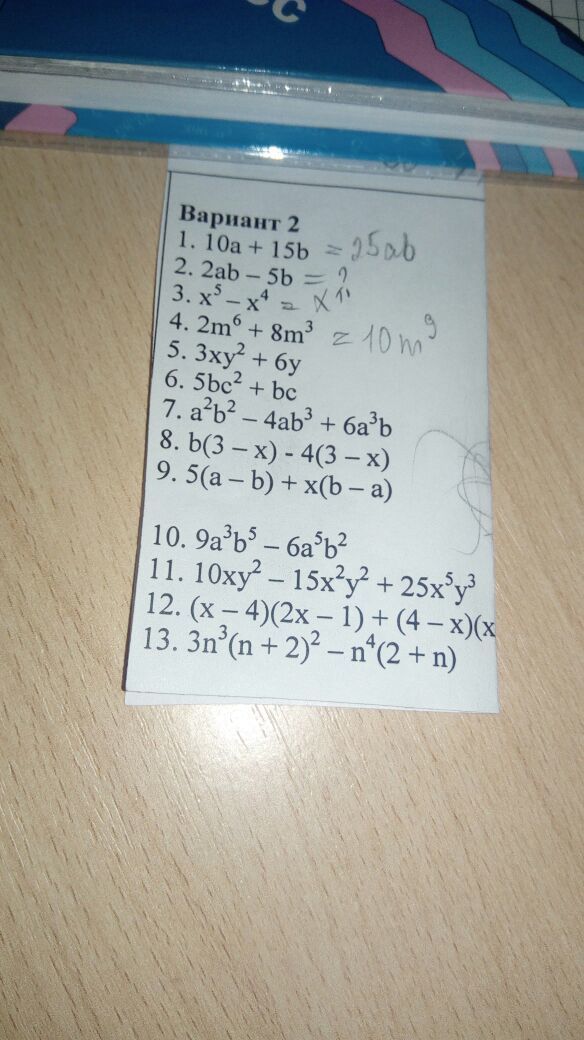 Вариант 2
1. 10a + 15b = 25ab
2. 2ab – 5b = ?
3. x⁵ – x⁴ = x
4. 2m⁶ + 8m³ = 10m⁹
5. 3xy² + 6y
6. 5bc² + bc
7. a²b² – 4ab³ + 6a³b
8. b(3 – x) - 4(3 – x)
9. 5(a – b) + x(b – a)
10. 9a³b⁵ – 6a⁵b²
11. 10xy² – 15x²y² + 25x⁵y³
12. (x – 4)(2x – 1) + (4 – x)(x
13. 3n³(n + 2)² – n⁴(2 + n)